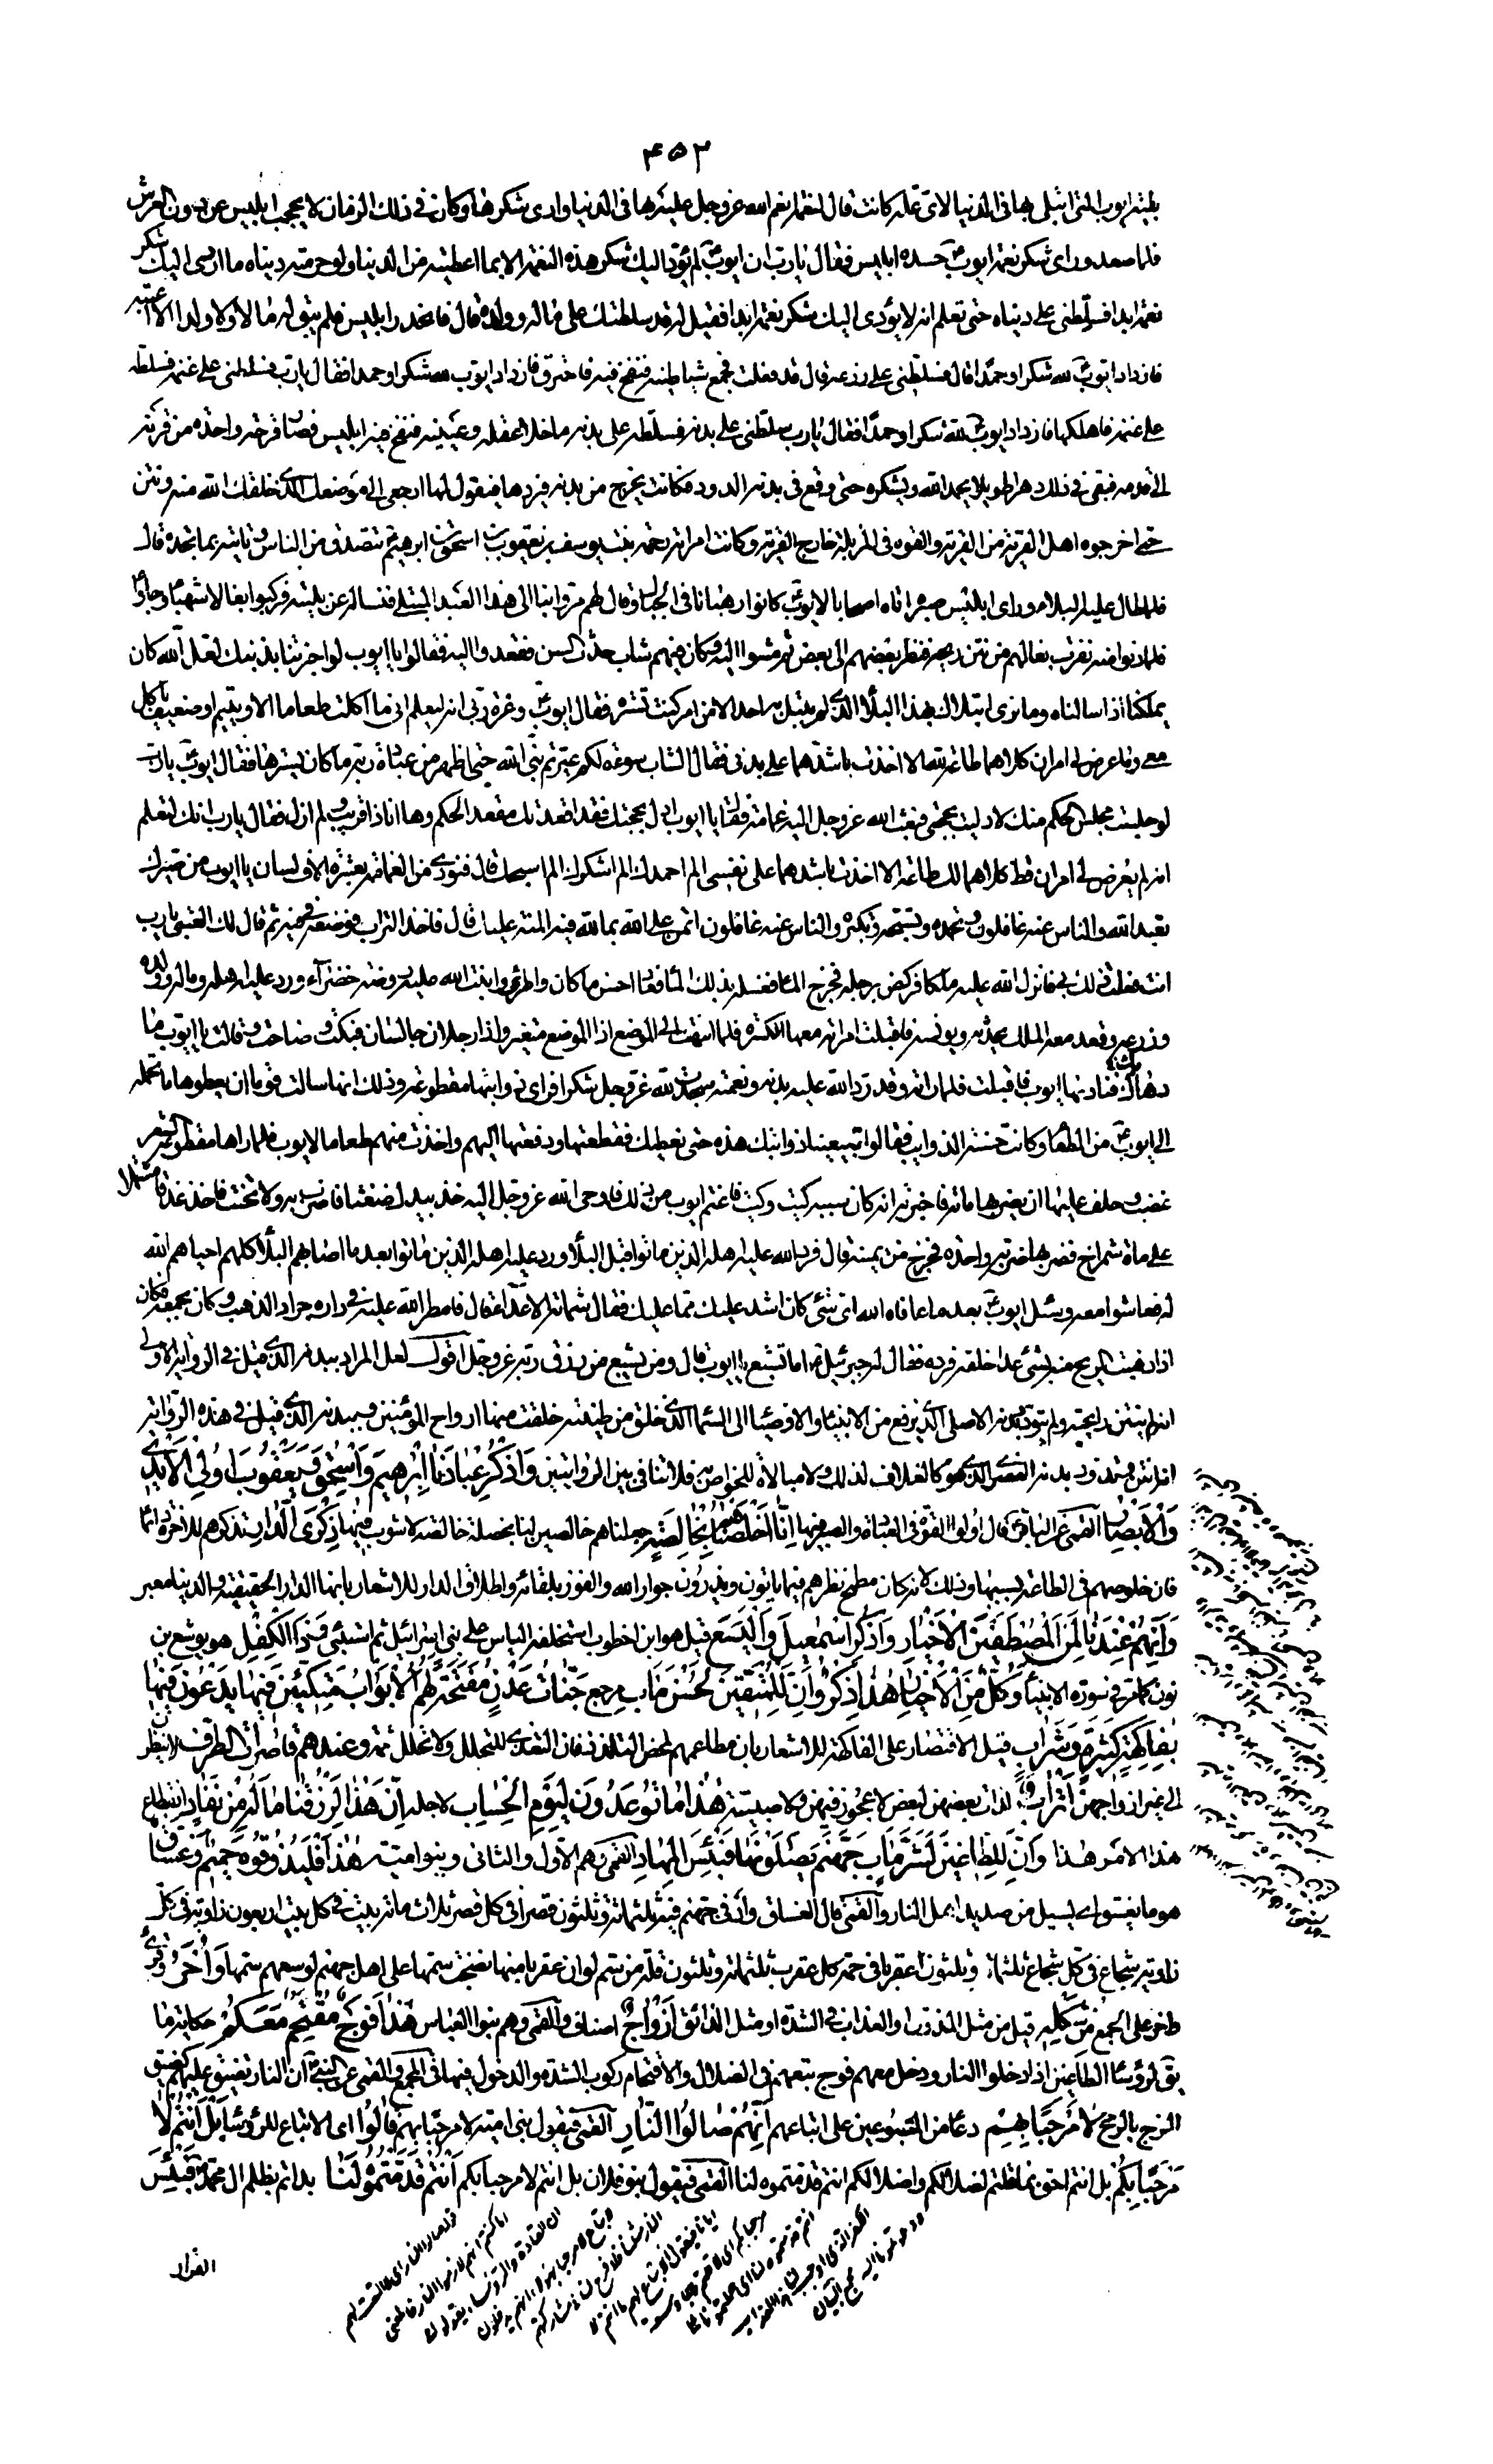 ٤٥٣
بليته ايوب التى ابتلى بها فى الدنيا لاى علة كانت قال لنعمة انعم الله عز وجل عليه بها فى الدنيا وادى شكرها وكان فى ذلك الزمان لا يحجب ابليس عن دون العرش
فلما صعد وراى شكر نعمة ايوب حسده ابليس فقال يا رب ان ايوب لم يؤد اليك شكر هذه النعمة الا بما اعطيته من الدنيا ولو حرمته دنياه ما ادى اليك شكر
نعمة ابدا فسلطنى على دنياه حتى تعلم انه لا يؤدى اليك شكر نعمة ابدا فقيل له قد سلطتك على ماله وولده قال فانحدر ابليس فلم يبق له مالا ولا ولدا الا اعطبه
فازداد ايوب لله شكرا وحمدا قال فسلطنى على زرعه قال قد فعلت فجمع شياطينه فنفخ فيه فاحترق فازداد ايوب لله شكرا وحمدا فقال يا رب فسلطنى على غنمه فسلطه
على غنمه فاهلكها فازداد ايوب لله شكرا وحمدا فقال يا رب سلطنى على بدنه فسلطه على بدنه ما خلا عقله وعينيه فنفخ فيه ابليس فصار قرحة واحدة من قرنه
الى قدمه فبقى فى ذلك دهرا طويلا يحمد الله ويشكره حتى وقع فى بدنه الدود فكانت تخرج من بدنه فيردها فيقول لها ارجعى الى موضعك الذى خلقك الله منه ونتن
حتى اخرجوه اهل القرية من القرية والقوه فى المزبلة خارج القرية وكانت امراته رحمة بنت يوسف بن يعقوب بن اسحق بن ابرهيم تتصدق من الناس وتاتيه بما تجده قال
فلما طال عليه البلاء وراى ابليس صبره اتاه اصحابا لايوب كانوا رهبانا فى الجبال وقال لهم مروا بنا الى هذا العبد المبتلى فنساله عن بليته فركبوا بغالا شهبا وجاؤا
فلما دنوا منه نفرت بغالهم من نتن ريحه فنظر بعضهم الى بعض ثم مشوا اليه وكان فيهم شاب حدث السن فقعدوا اليه فقالوا يا ايوب لو اخبرتنا بذنبك لعل الله كان
يملكنا اذا سالناه وما نرى ابتلاك بهذا البلاء الذى لم يبتل به احد الا من امر كنت تستره فقال ايوب وعزة ربى انه ليعلم انى ما اكلت طعاما الا ويتيم او ضعيف ياكل
معى وما عرض لى امران كلاهما طاعة لله الا اخذت باشدهما على بدنى فقال الشاب سوءة لكم عيرتم نبى الله حتى اظهر من عبادة ربه ما كان يسترها فقال ايوب يا رب
لو جلست مجلس الحكم منك لادليت بحجتى فبعث الله عز وجل اليه غمامة فقال يا ايوب ادل بحجتك فقد اقعدتك مقعد الحكم وها انا ذا قريب ولم ازل فقال يا رب انك لتعلم
انه لم يعرض لى امران قط كلاهما لك طاعة الا اخذت باشدهما على نفسى الم احمدك الم اشكرك الم اسبحك قال فنودى من الغمامة بعشرة الاف لسان يا ايوب من صيرك
تعبد الله والناس عنه غافلون وتحمده وتسبحه وتكبره والناس عنه غافلون اتمن على الله بما لله فيه المنة عليك قال فاخذ التراب فوضعه فى فيه ثم قال لك العتبى يا رب
انت فعلت ذلك بى فانزل الله عليه ملكا فركض برجله فخرج الماء فغسله بذلك الماء فعاد احسن ما كان واطرء وانبت الله عليه روضة خضراء ورد عليه اهله وماله وولده
وزرعه وقعد معه الملك يحدثه ويونسه فاقبلت امراته معها الكسرة فلما انتهت الى الموضع اذا الموضع متغير واذا رجلان جالسان فبكت وصاحت وقالت يا ايوب ما
دهاك فناديها ايوب فاقبلت فلما راته وقد رد الله عليه بدنه ونعمته سجدت لله عز وجل شكرا فراى ذوابتها مقطوعة وذلك انها سالت قوما ان يعطوها ما تحمله
الى ايوب من الطعام وكانت حسنة الذوايب فقالوا تبيعينا ذوائبك هذه حتى نعطيك فقطعتها ودفعتها اليهم واخذت منهم طعاما لايوب فلما راها مقطوعة الشعر
غضب وحلف عليها ان يضربها مائة فاخبرته انه كان سببه كيت وكيت فاغتم ايوب من ذلك فاوحى الله عز وجل اليه خذ بيدك ضغثا فاضرب به ولا تحنث فاخذ عذقا مشتملا
على مائة شمراخ فضربها ضربة واحدة فخرج من يمينه قال فرد الله عليه اهله الذين ماتوا قبل البلاء ورد عليه اهله الذين ماتوا بعد ما اصابهم البلاء كلهم احياهم الله
له فعاشوا معه وسئل ايوب بعد ما عافاه الله اى شئ كان اشد عليك مما مر عليك فقال شماتة الاعداء قال فامطر الله عليه فى داره جراد الذهب وكان يجمعه فكان
اذا ذهبت الريح منه بشئ عدا خلفه فرده فقال له جبرئيل اما تشبع يا ايوب قال ومن يشبع من رزق ربه عز وجل اقول لعل المراد ببدنه الذى قيل فى الرواية الاولى
انه لم ينتن رايحته ولم يتدود بدنه الاصلى الذى يرفع من الانبياء والاوصياء الى السماء الذى خلق من طينته خلقت منها ارواح المؤمنين وببدنه الذى قيل فى هذه الرواية
انه انتن وتدود بدنه العنصرى الذى هو كالغلاف لذلك ولا مبالاة للخواص به فلا تنافى بين الروايتين وَاذْكُرْ عِبَادَنَا اِبْرٰهِيمَ وَاِسْحٰقَ وَيَعْقُوبَ اُولِى الْاَيْدِى
وَالْاَبْصَارِ القمى عن الباقر قال اولوا القوة فى العبادة والبصر فيها اِنَّا اَخْلَصْنَاهُمْ بِخَالِصَةٍ جعلناهم خالصين لنا بخصلة خالصة لا شوب فيها ذِكْرَى الدَّارِ تذكرهم للاخرة دائما
فان خلوصهم فى الطاعة بسببها وذلك لانه كان مطمح نظرهم فيما ياتون ويذرون جوار الله والفوز بلقائه واطلاق الدار للاشعار بانها الدار الحقيقة والدنيا معبر
وَاِنَّهُمْ عِنْدَنَا لَمِنَ الْمُصْطَفَيْنَ الْاَخْيَارِ وَاذْكُرْ اِسْمٰعِيلَ وَالْيَسَعَ قيل هو ابن اخطوب استخلفه الياس على بنى اسرائيل ثم استنبئ وَذَا الْكِفْلِ هو يوشع بن
نون كما مر فى سورة الانبياء وَكُلٌّ مِنَ الْاَخْيَارِ هٰذَا ذِكْرٌ وَاِنَّ لِلْمُتَّقِينَ لَحُسْنَ مَاٰبٍ مرجع جَنَّاتِ عَدْنٍ مُفَتَّحَةً لَهُمُ الْاَبْوَابُ مُتَّكِئِينَ فِيهَا يَدْعُونَ فِيهَا
بِفَاكِهَةٍ كَثِيرَةٍ وَشَرَابٍ قيل الاقتصار على الفاكهة للاشعار بان مطاعمهم لمحض التلذذ فان التغذى للتحلل ولا تحلل ثمة وَعِنْدَهُمْ قَاصِرَاتُ الطَّرْفِ لا ينظرن
الى غير ازواجهن اَتْرَابٌ لدات بعضهن لبعض لا عجوز فيهن ولا صبية هٰذَا مَا تُوعَدُونَ لِيَوْمِ الْحِسَابِ لاجله اِنَّ هٰذَا لَرِزْقُنَا مَا لَهُ مِنْ نَفَادٍ انقطاع
هٰذَا الامر هذا وَاِنَّ لِلطَّاغِينَ لَشَرَّ مَاٰبٍ جَهَنَّمَ يَصْلَوْنَهَا فَبِئْسَ الْمِهَادُ القمى وهم الاول والثانى وبنو امية هٰذَا فَلْيَذُوقُوهُ حَمِيمٌ وَغَسَّاقٌ
هو ما يغسق اى يسيل من صديد اهل النار والقمى قال الغساق واد فى جهنم فيه ثلثمائة وثلثون قصرا فى كل قصر ثلاث مائة بيت فى كل بيت اربعون زاوية فى كل
زاوية شجاع فى كل شجاع ثلثمائة وثلثون عقربا فى حمة كل عقرب ثلثمائة وثلثون قلة من سم لو ان عقربا منها نضحت سمها على اهل جهنم لوسعهم سمها وَاُخَرُ وقرئ
اخر على الجمع مِنْ شَكْلِهِ قيل من مثل المذوق او العذاب فى الشدة او مثل الذائق اَزْوَاجٌ اصناف والقمى وهم بنو العباس هٰذَا فَوْجٌ مُقْتَحِمٌ مَعَكُمْ حكاية ما
يق لرؤساء الطاغين اذا دخلوا النار ودخل معهم فوج تبعهم فى الضلال والاقتحام ركوب الشدة والدخول فيها فى المجمع والقمى عن النبى ان النار تضيق عليهم كضيق
الزج بالرمح لَا مَرْحَبًا بِهِمْ دعاء من المتبوعين على اتباعهم اِنَّهُمْ صَالُوا النَّارِ القمى فيقول بنو امية لا مرحبا بهم قَالُوا اى الاتباع للرؤساء بَلْ اَنْتُمْ لَا
مَرْحَبًا بِكُمْ بل انتم احق بما قلتم لضلالكم واضلالكم انتم قدمتموه لنا القمى فيقول بنو فلان بل انتم لا مرحبا بكم اَنْتُمْ قَدَّمْتُمُوهُ لَنَا بداتم بظلم ال محمد فَبِئْسَ
القرار